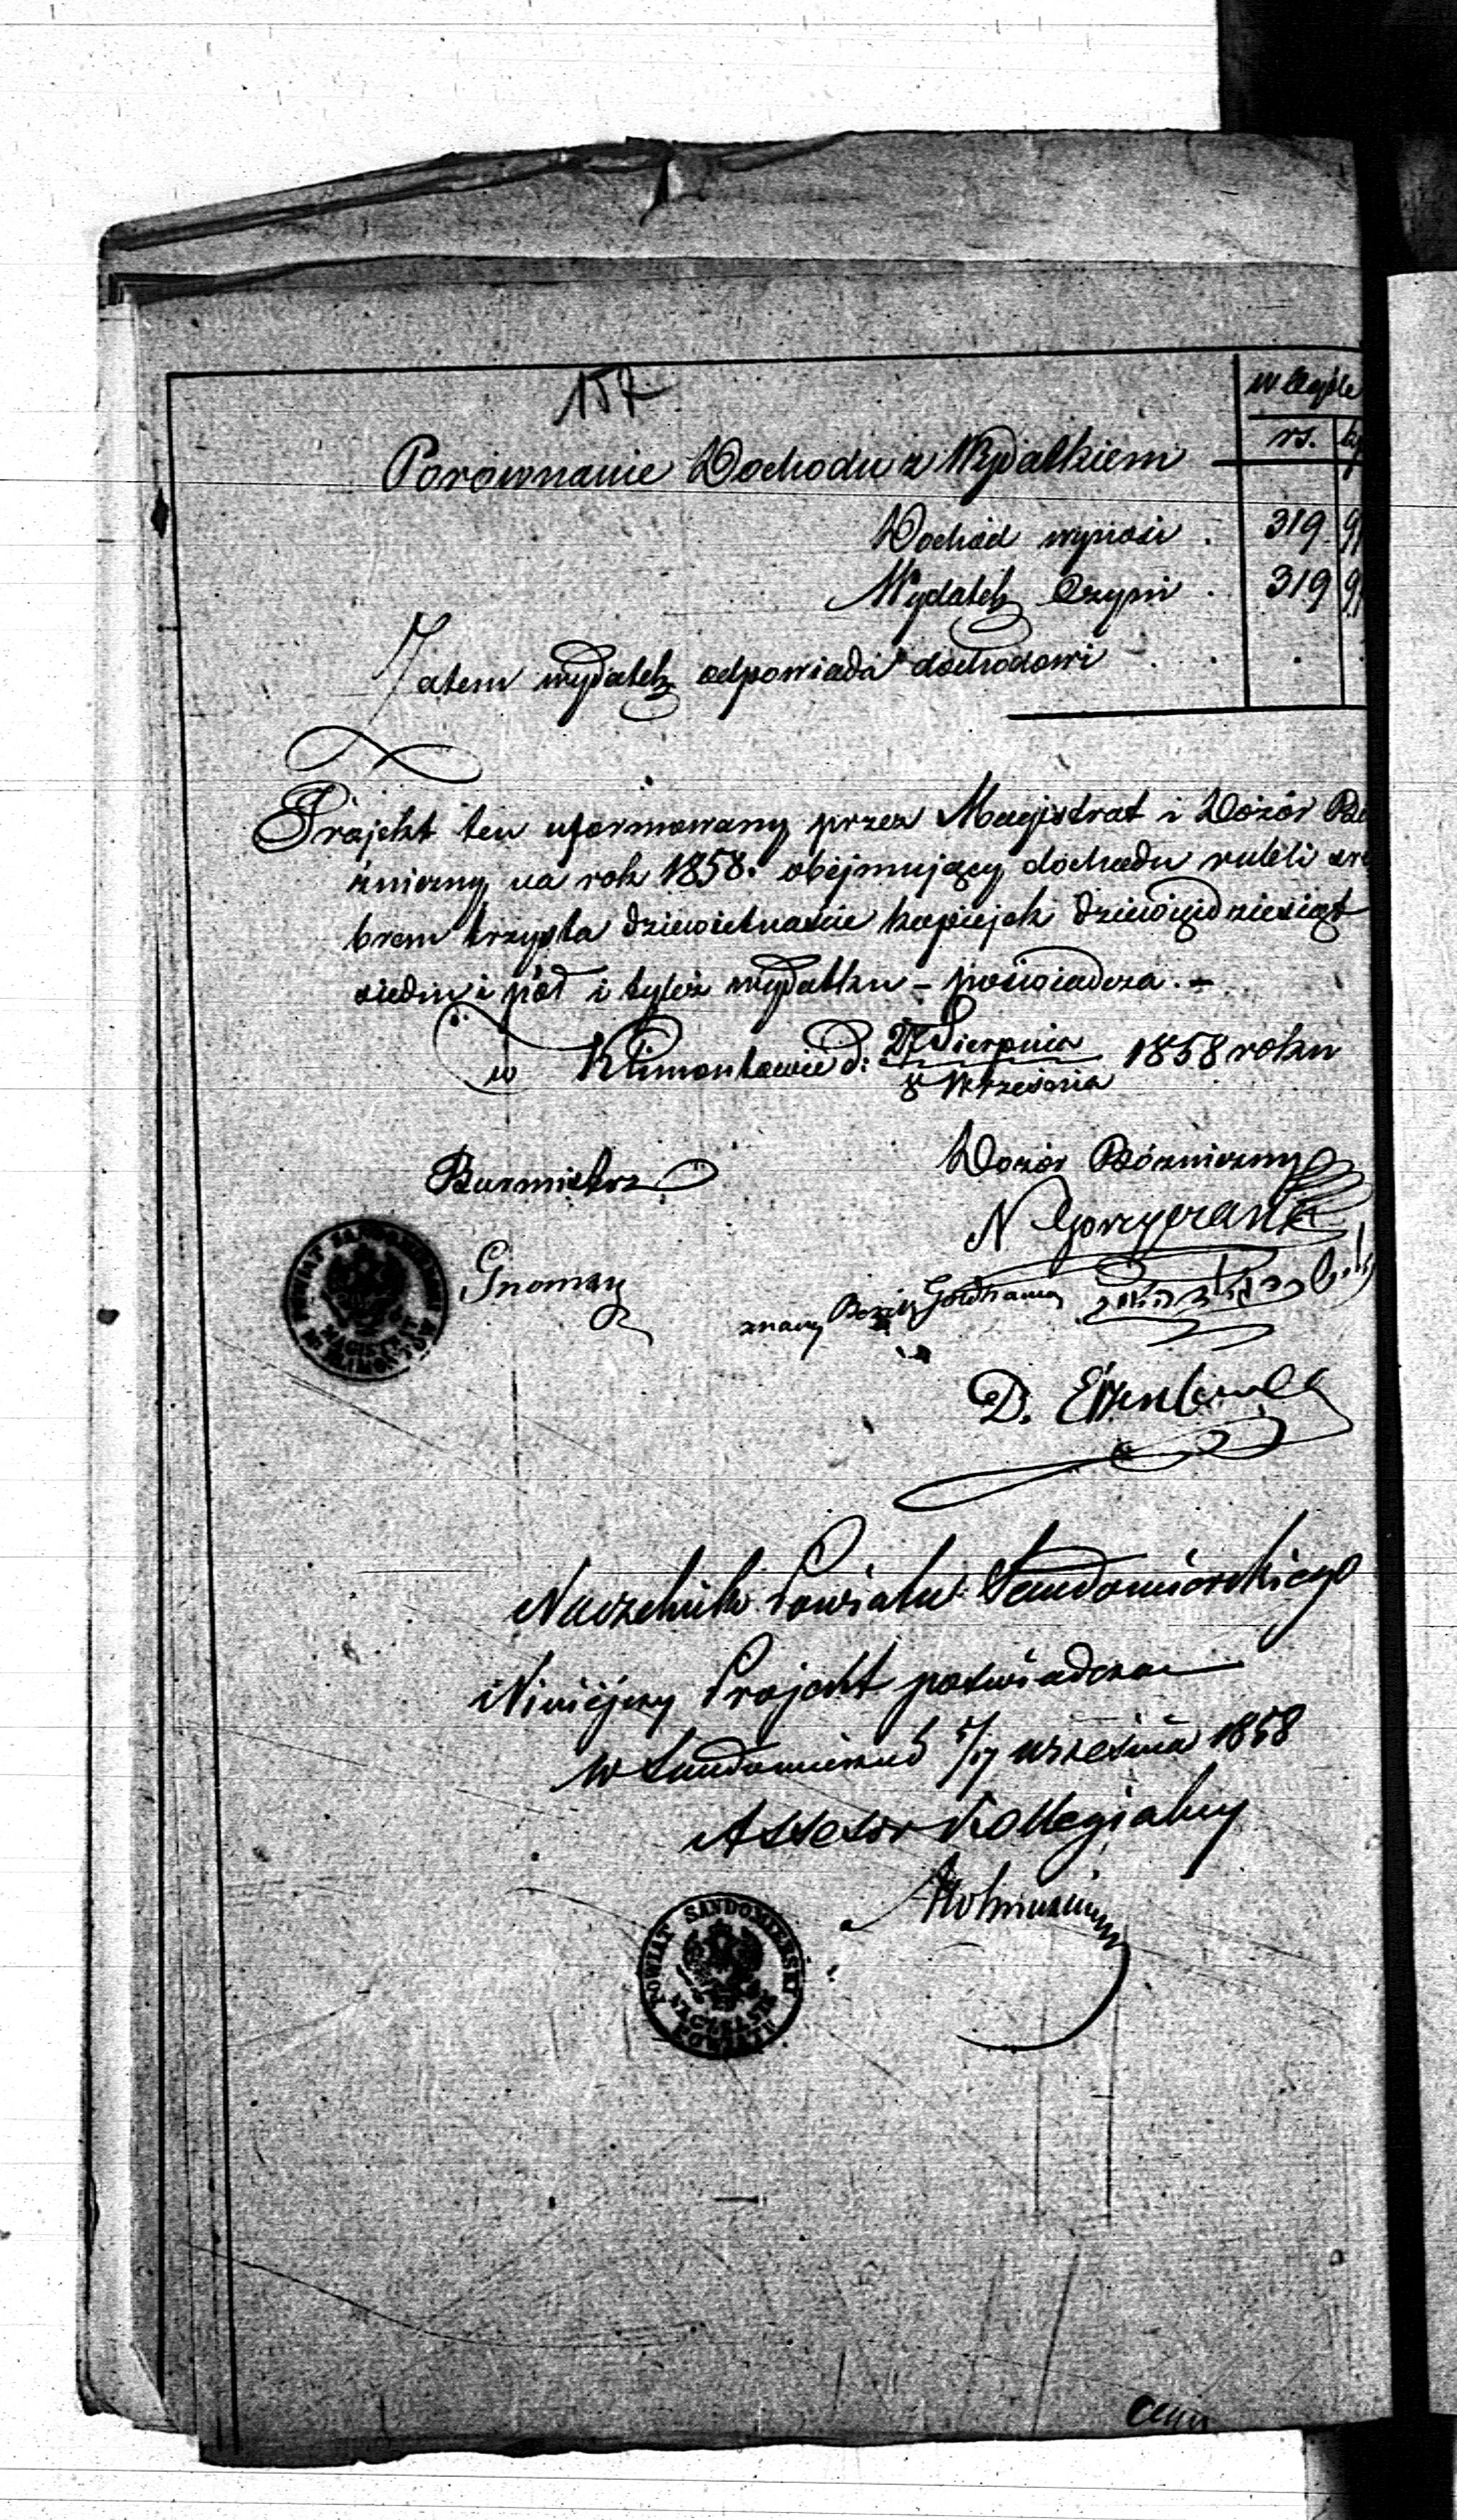 157
w ogóle
rs. k
Porównanie Dochodu z Wydatkiem
Dochód wynosi . 319 9
Wydatek Czyni . 319 9
Zatem wydatek odpowiada dochodowi . . .
Projekt ten uformowany przez Magistrat i Dozór Bó
żniczny na rok 1858. obejmujący dochodu rubli sre
brem trzysta dziewietnaście kopiejek dziewięćdziesiąt
siedm i pół i tyleż wydatku – poświadcza. –
w Klimontowie d: 27 Sierpnia
8 Września 1858 roku
Burmistrz
Dozór Bóżniczny
N Gorzyczań
POWIAT SANDOMIERSKI
MAGISTRAT
M. KLIMONTÓW
znaczy
D.
Naczelnik Powiatu Sandomierskiego
Niniéjszy Projekt poświadcza
w Sandomierzu d 5/17 września 1858
Assesor Kollegialny
POWIAT SANDOMIERSKI
NACZELNIK
POWIATU